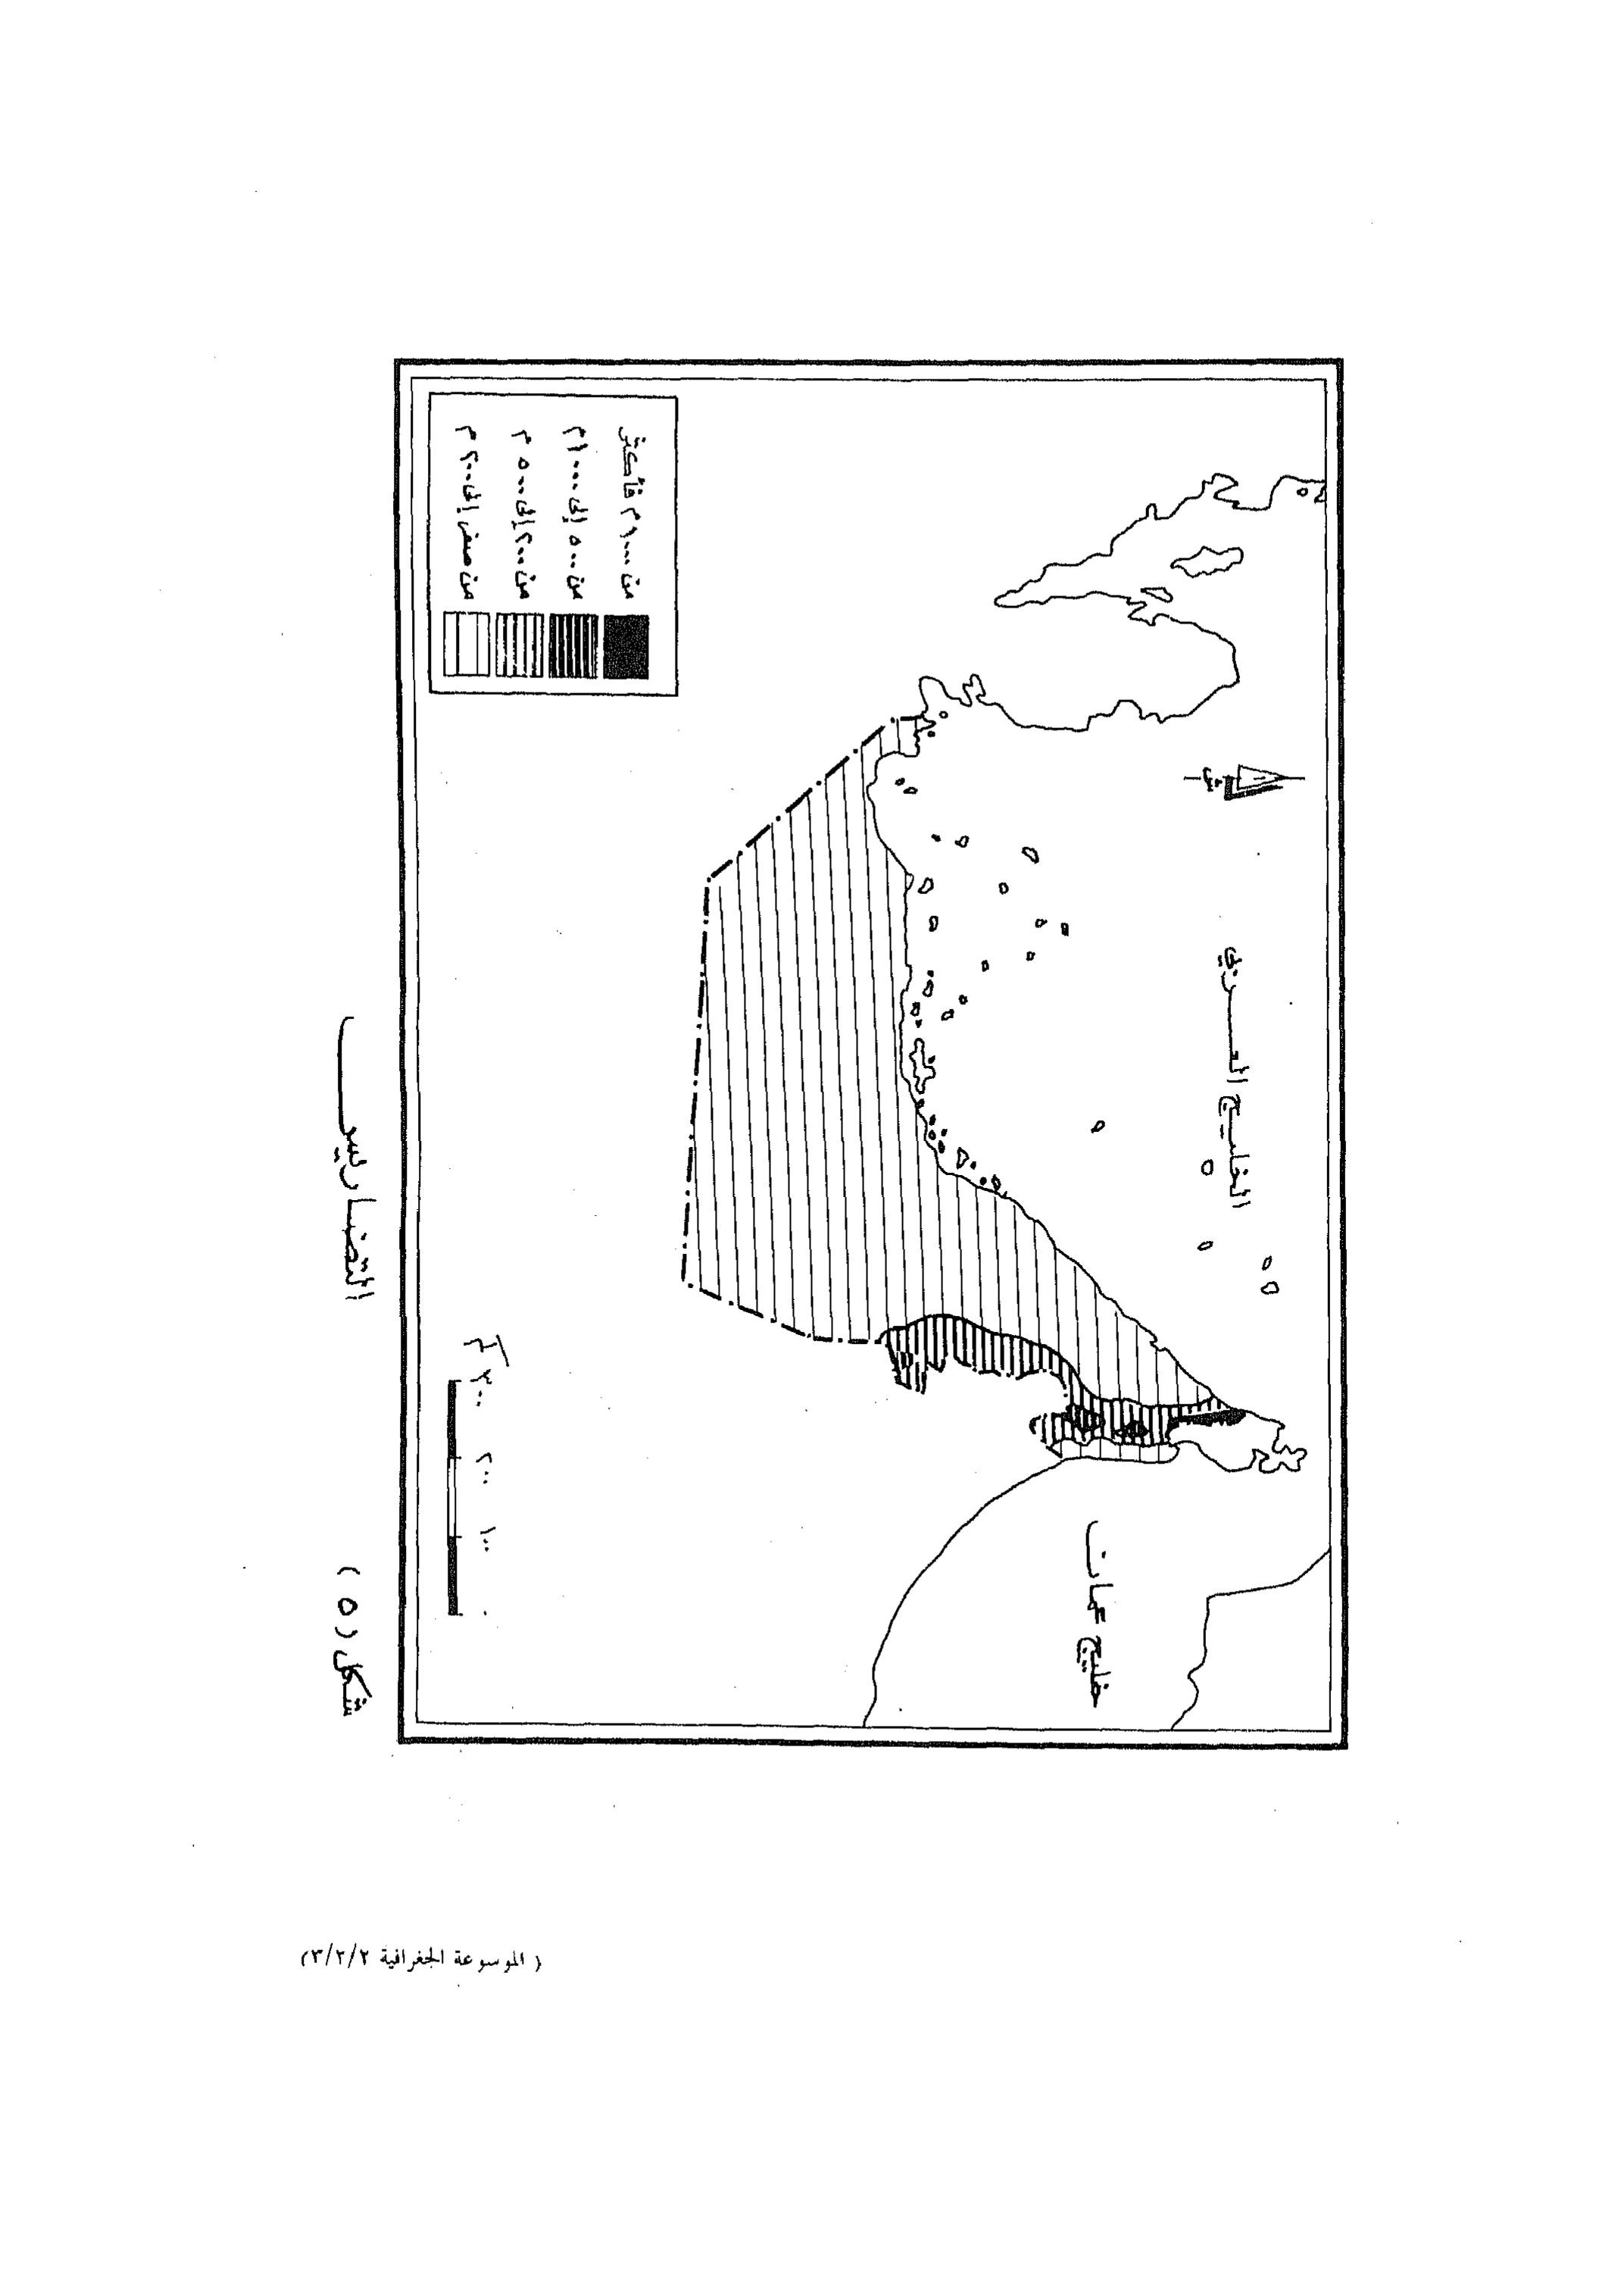 الخليج العربي
خليج عمان
من ١٠٠٠م فأكثر
من ٥٠٠ إلى ١٠٠٠م
من ٢٠٠ إلى ٥٠٠ م
من صفر إلى ٢٠٠ م
٣٠٠ ٢٠٠ ١٠٠ ٠
كم
شكل (٥) التضاريس
(الموسوعة الجغرافية ٣/٢/٢)